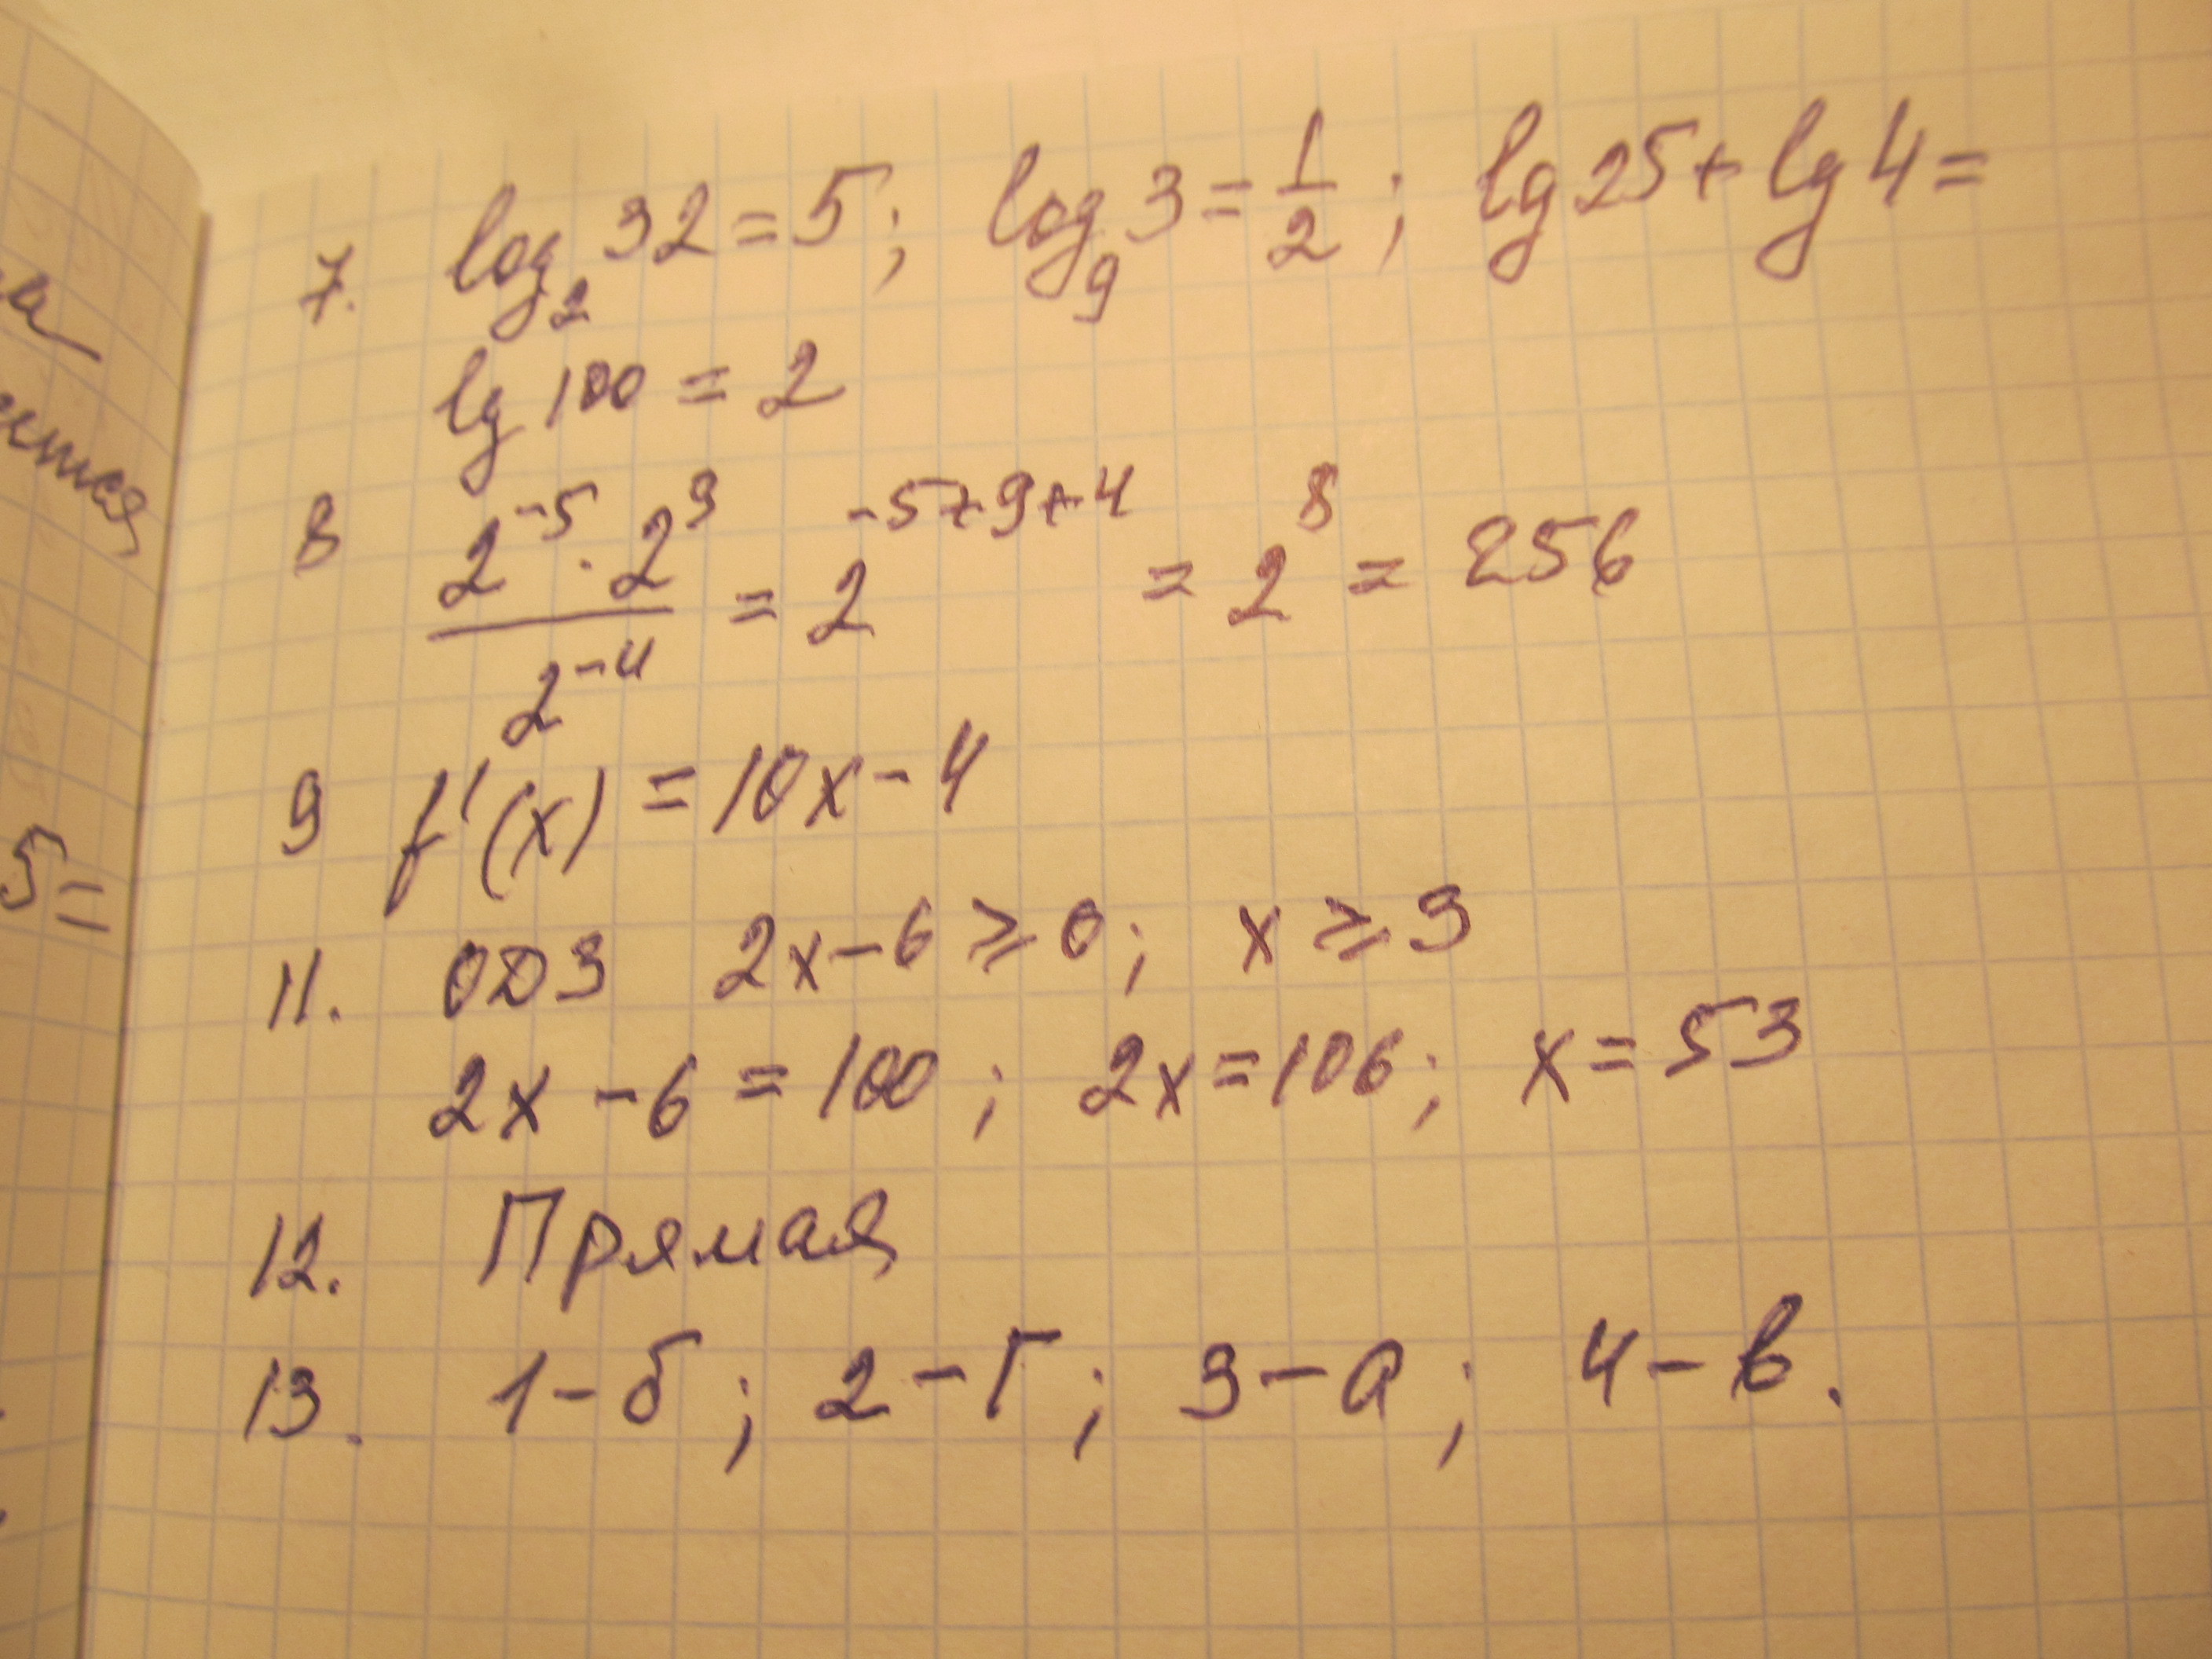 7. log₂ 32 = 5; log₉ 3 = 1/2; lg 25 + lg 4 =
lg 100 = 2
8 (2⁻⁵ · 2⁹)/2⁻⁴ = 2⁻⁵⁺⁹⁺⁴ = 2⁸ = 256
9 f'(x) = 10x - 4
11. ОДЗ 2x - 6 ≥ 0; x ≥ 3
2x - 6 = 100; 2x = 106; x = 53
12. Прямая
13. 1 - б; 2 - Г; 3 - а; 4 - в.
5=